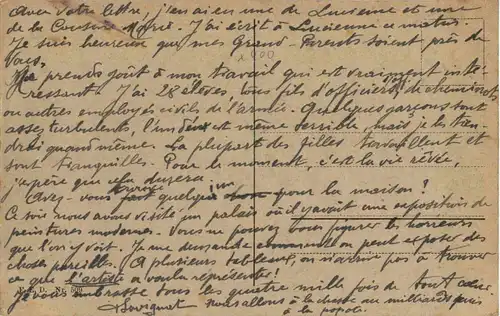 Avec votre lettre, j'en ai eu une de Lucienne et une
de la Cousine Marie. J'ai écrit à Lucienne ce matin.
Je suis heureux que mes Grand-Parents soient près de
vous.
Je prends goût à mon travail qui est vraiment inté-
ressant. J'ai 28 élèves, tous fils d'officiers, de cheminots
ou autres employés civils de l'armée. Quelques garçons sont
assez turbulents, l'un d'eux est même terrible, mais je les tien-
drai quand même. La plupart des filles travaillent et
sont tranquilles. Pour le moment, c'est la vie rêvée,
j'espère que cela durera.
Avez-vous trouvé quelqu'un pour la maison?
Ce soir nous avons visité un palais où il y avait une exposition de
peintures modernes. Vous ne pouvez vous figurer les horreurs
que l'on y voit. Je me demande comment on peut exposer des
choses pareilles. (A plusieurs tableaux, on n'arrive pas à trouver
ce que l'artiste a voulu représenter!
Je vous embrasse tous les quatre mille fois de tout cœur
Nous allons à la chasse au
à la popote.